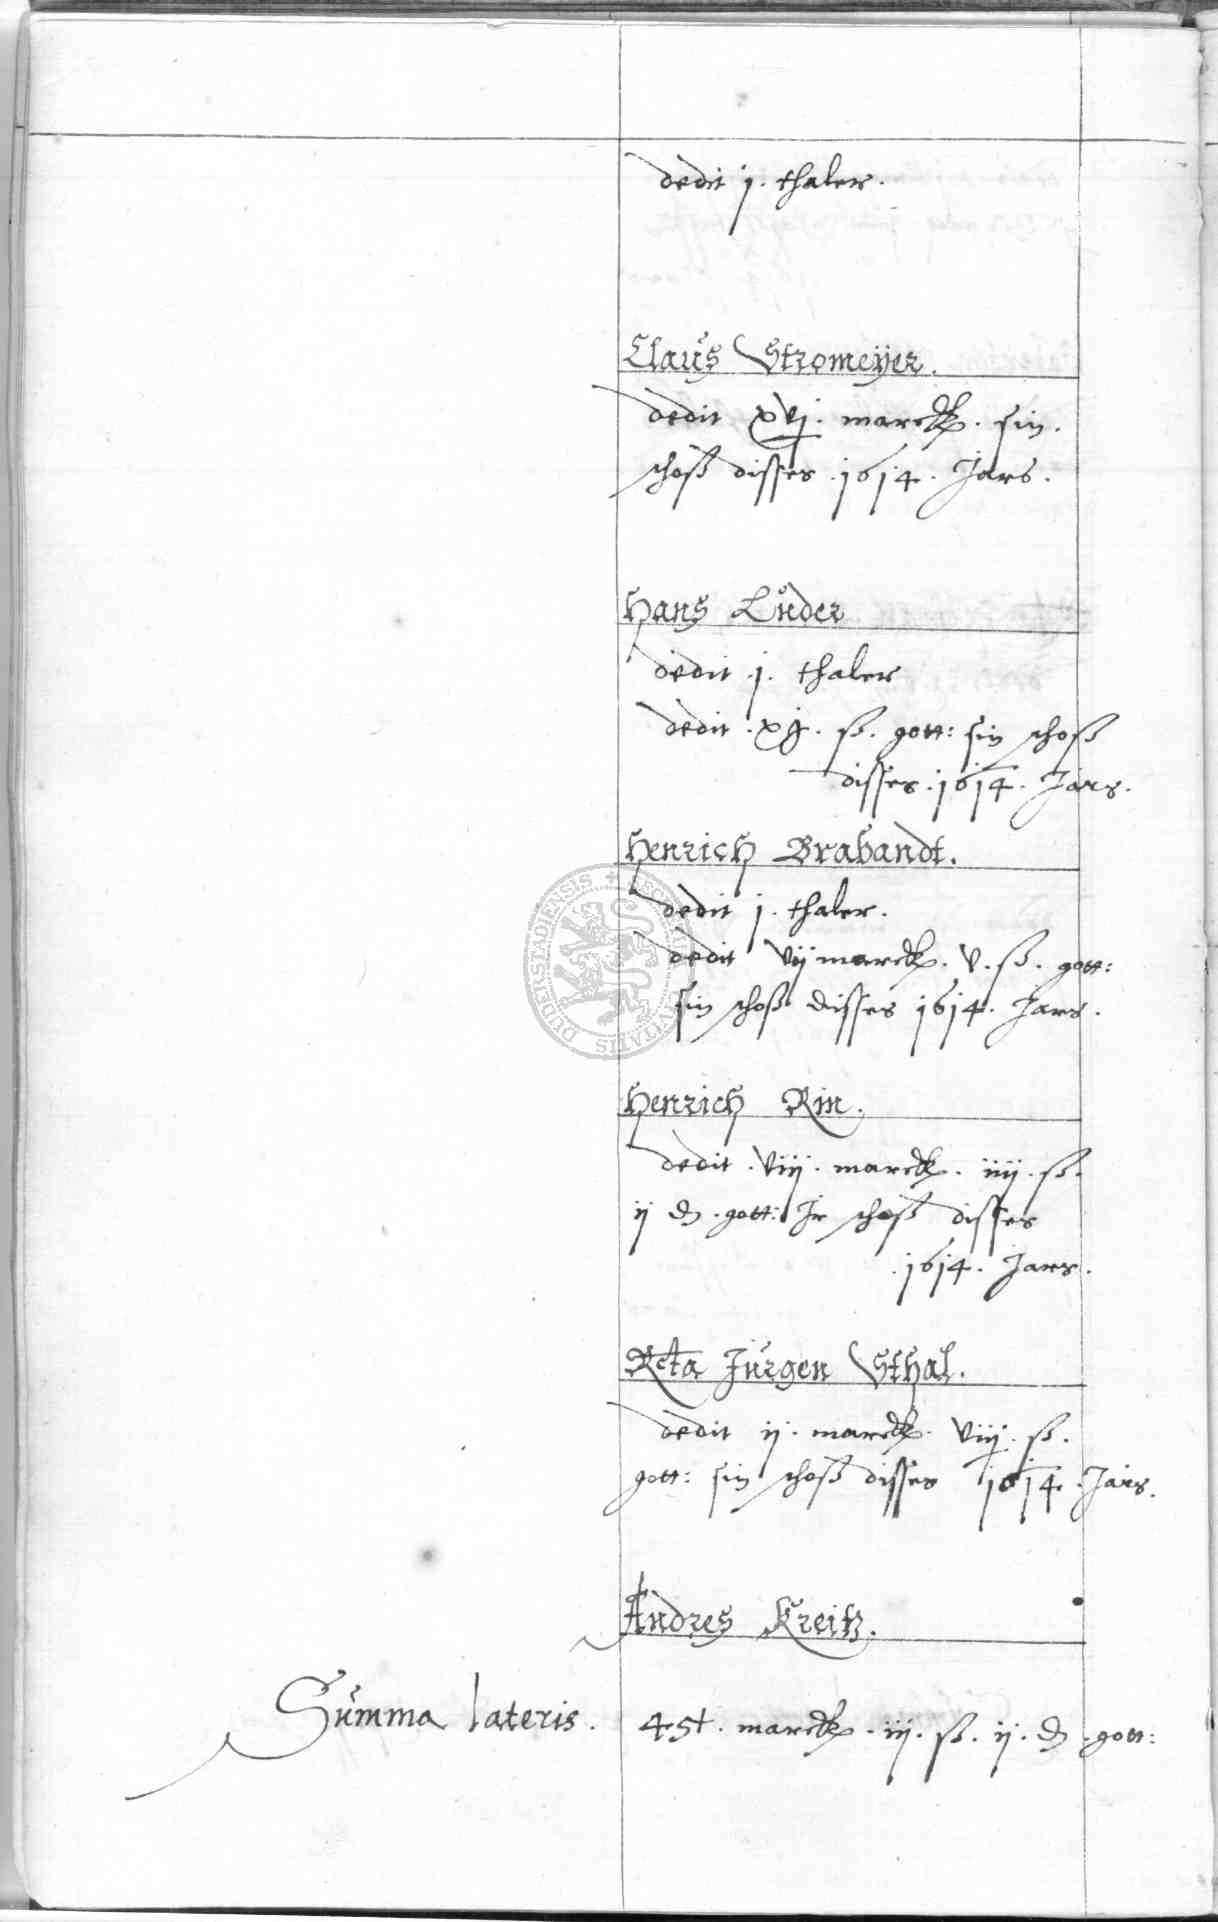 dedit j. thaler.
Claus Stromeyer.
dedit xvj. marck. sin.
schoß disses .1614. Jars.
Hans Lüder
dedit .j. thaler
dedit . ß. gott: sin schoß
disses .1614. Jars.
Henrich Brabandt.
dedit j. thaler.
dedit vij marck. v. ß. gott:
sin schoß disses 1614. Jars.
Henrich Rin.
dedit .viij. marck. iiij. ß.
ij ₰ .gott: Ir schoß disses
.1614. Jars.
Rcta Jürgen Sthal.
dedit ij. marck. viij. ß.
gott: sin schoß disses 1614 .Jars.
Andres Kreitz.
Summa lateris. marck .iij. ß. ij. ₰ .gott:
DUDERSTADIENSIS CIVITATIS